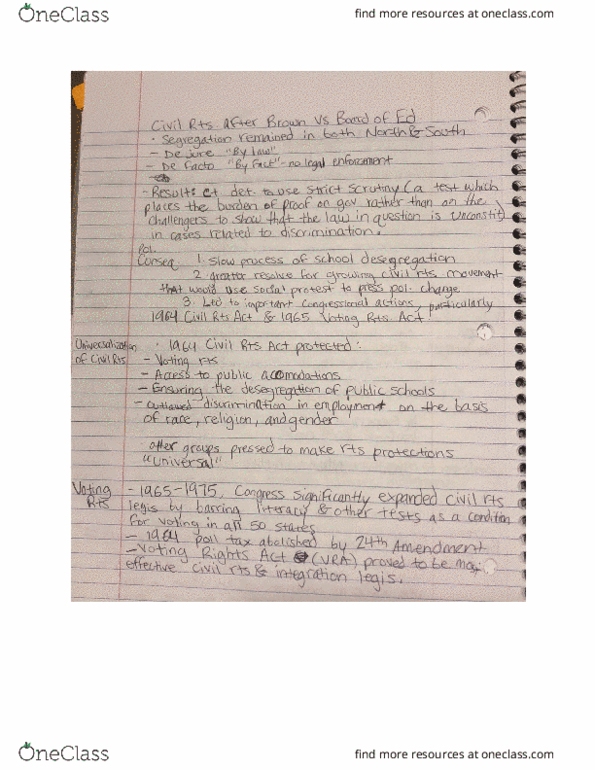 OneClass
find more resources at oneclass.com
Civil Rts After Brown Vs Board of Ed
· Segregation remained in both North & South
- De jure "By Law"
- De Facto "By Fact" - no legal enforcement
- Result: Ct det. to use strict scrutiny (a test which
places the burden of proof on gov rather than on the
challengers to show that the law in question is unconstit)
in cases related to discrimination.
Pol.
Conseq 1. Slow process of school desegregation
2. greater resolve for growing civil rts movement
that would use social protest to press pol. change
3. Led to important congressional actions, particularly
1964 Civil Rts Act & 1965 Voting Rts Act.
Universalization · 1964 Civil Rts Act protected:
of Civil Rts - Voting rts
- Access to public accomodations
- Ensuring the desegregation of public schools
- outlawed discrimination in employment on the basis
of race, religion, and gender
other groups pressed to make rts protections
"Universal"
Voting - 1965-1975, Congress significantly expanded civil rts
Rts legis by barring literacy & other tests as a condition
for voting in all 50 states
- 1964 poll tax abolished by 24th Amendment
- Voting Rights Act (VRA) proved to be
effective civil rts & integration legis.
OneClass
find more resources at oneclass.com